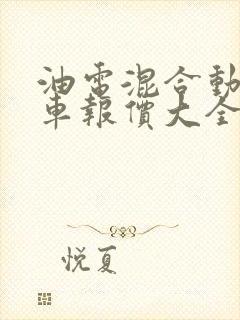 油電混合動
車報價大全
悦夏